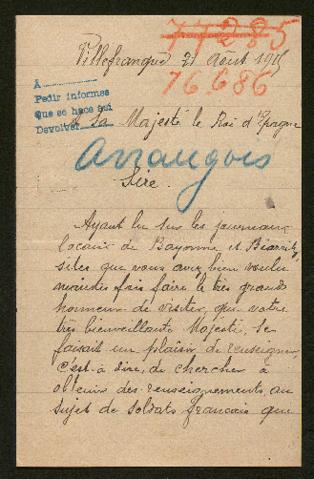 77285
Villefranque 21 Août 1915
76686
A
Pedir informes
Que se hace aquí
Devolver
A Sa Majesté le Roi d'Espagne
Arraugois
Sire.
Ayant lu sur les journaux
locaux de Bayonne et Biarritz,
sites que vous avez bien voulu
maintes fois faire le très grand
honneur de visiter, que votre
très bienveillante Majesté, se
faisait un plaisir de renseigner,
c'est à dire, de chercher à
obtenir des renseignements au
sujet de soldats français que